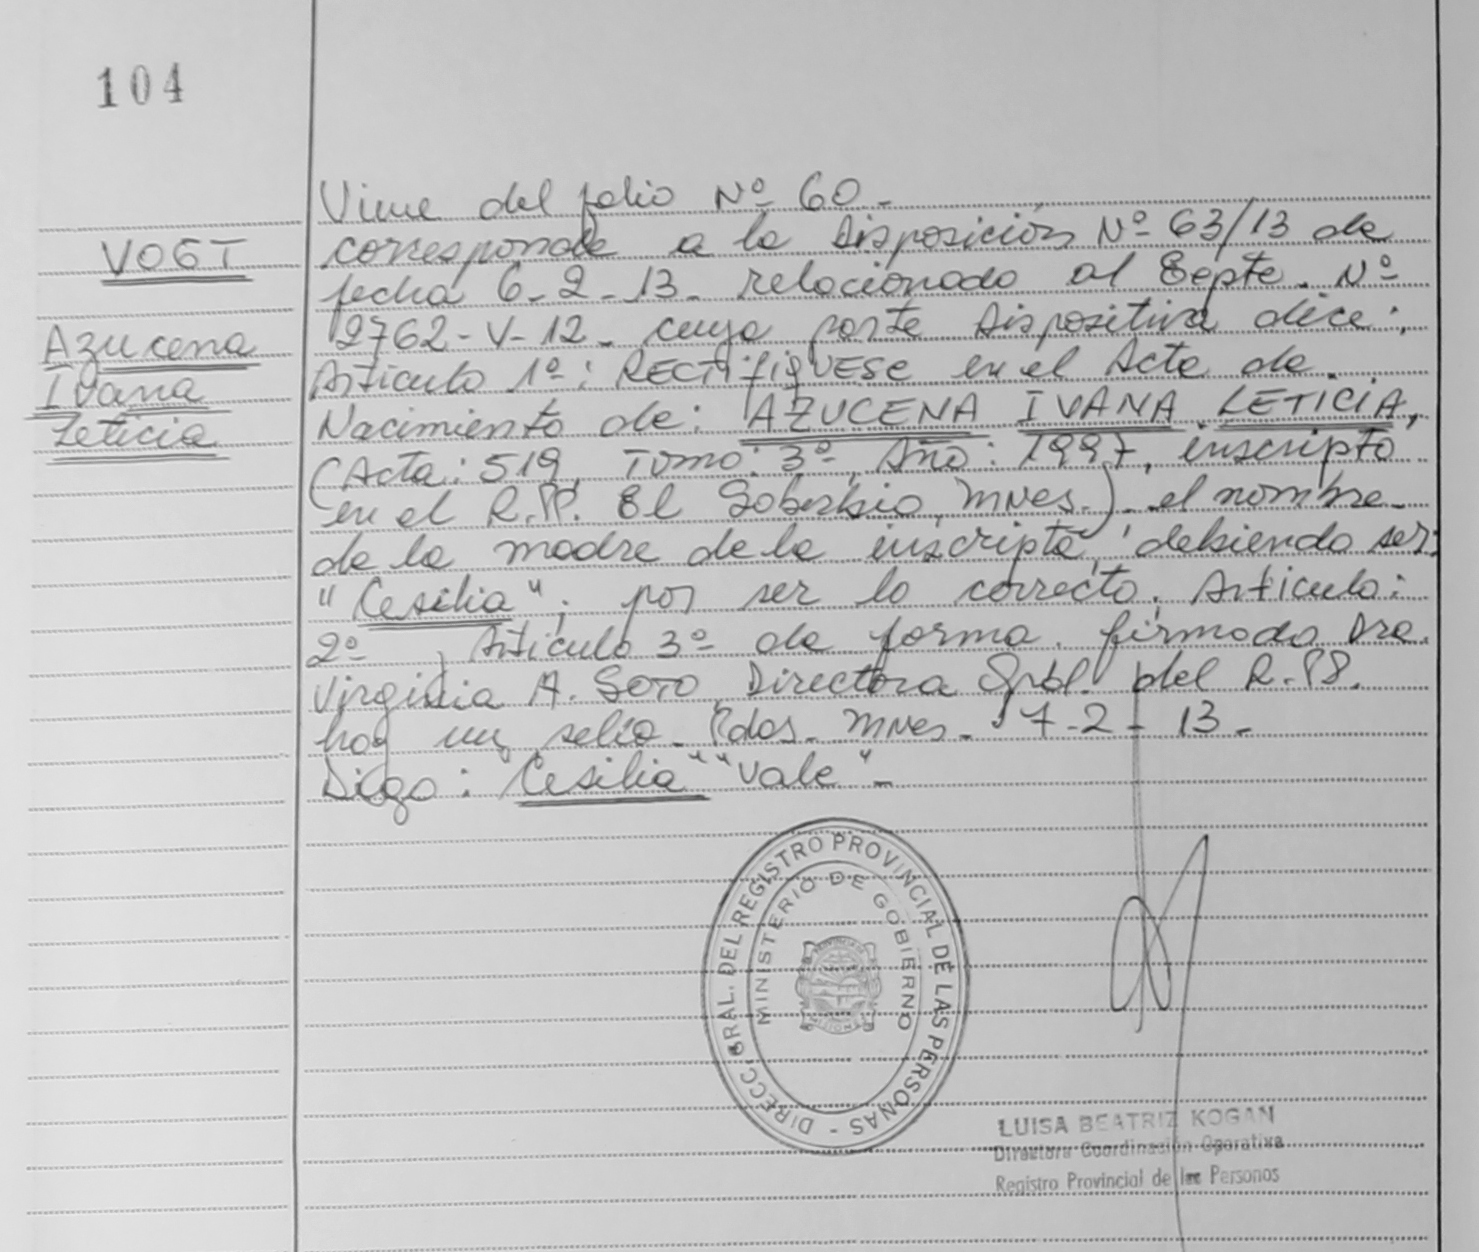 104
VOGT
Azucena
Ivana
Leticia
Viene del folio Nº 60.-
corresponde a la Disposición Nº 63/13 de
fecha 6-2-13- relacionado al Expte. Nº
2762-V-12- cuya parte Dispositiva dice:
Artículo 1º: RECTIFIQUESE en el Acta de
Nacimiento de: AZUCENA IVANA LETICIA,
(Acta: 519, Tomo: 3º, Año: 1997, inscripto
en el R.PP. El Soberbio, Mnes.) el nombre
de la madre de la inscripta, debiendo ser:
"Cesilia"; por ser lo correcto. Artículo:
2º, Artículo 3º de forma. firmado Dra.
Virginia A. Soto Directora Gral. del R.PP.
hay un sello. Pdas. Mnes. 17-2-13.-
Digo: "Cesilia" "Vale"-
DIRECC. GRAL. DEL REGISTRO PROVINCIAL DE LAS PERSONAS -
MINISTERIO DE GOBIERNO
LUISA BEATRIZ KOGAN
Directora Coordinación Operativa
Registro Provincial de las Personas